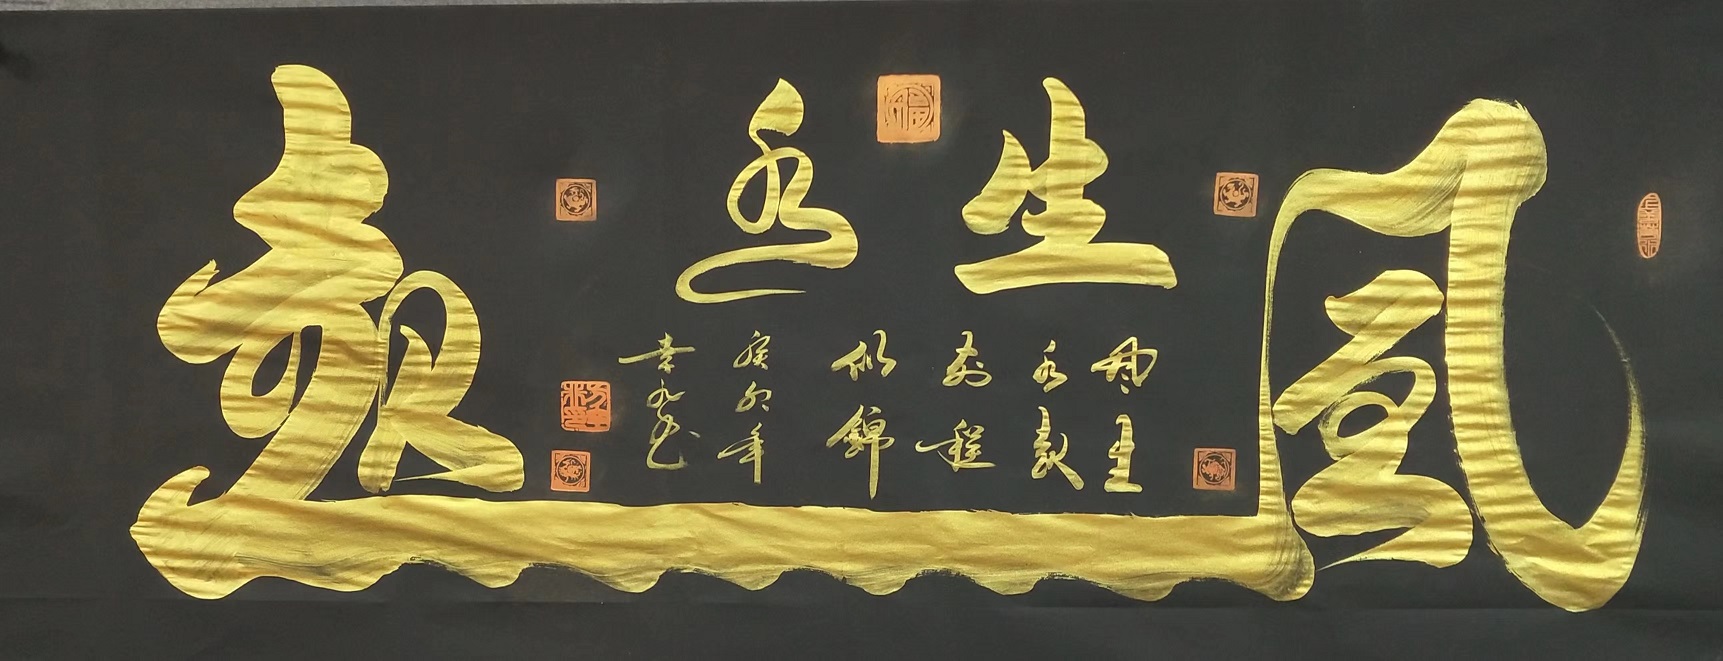 風生水起
風生
水起
前程
似錦
癸卯年
福